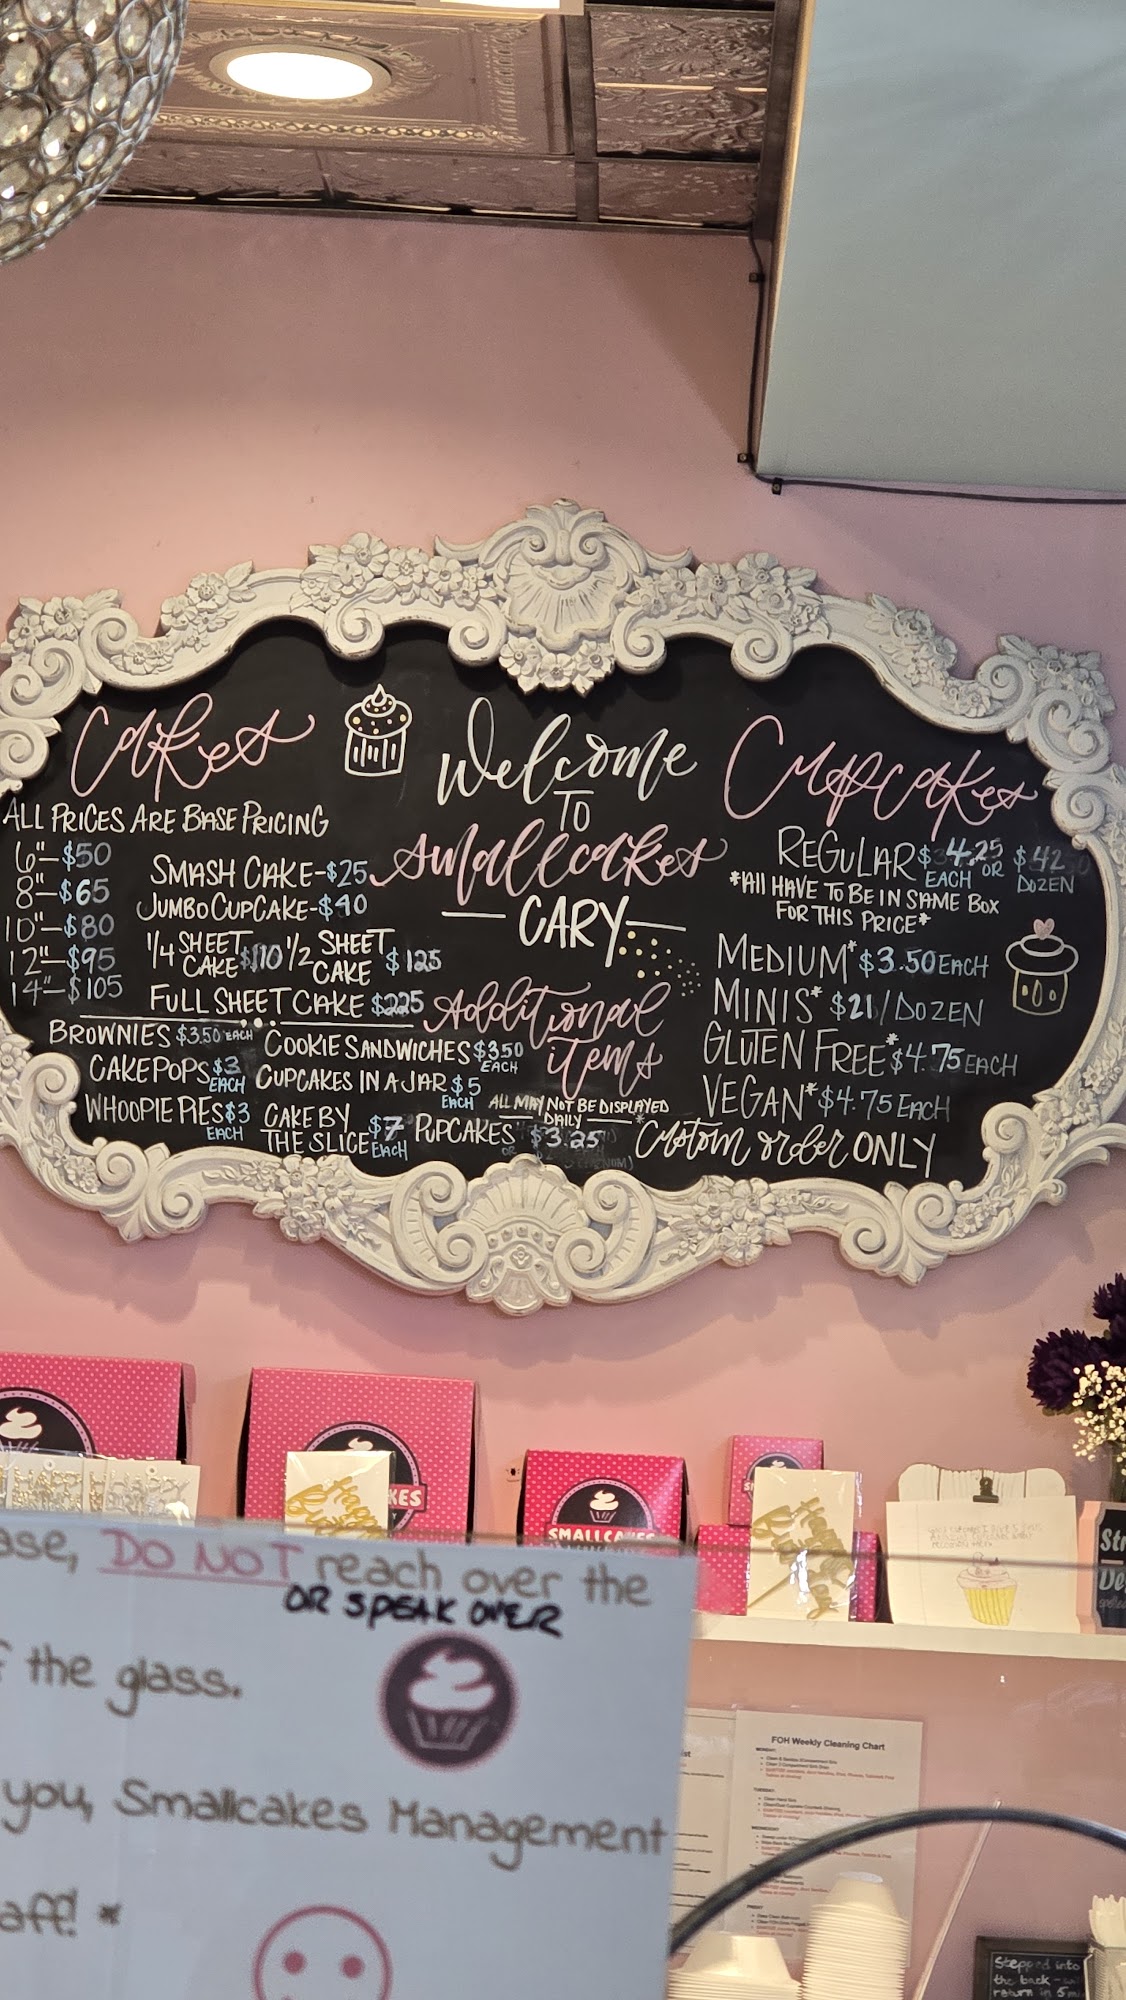 Cakes
ALL PRICES ARE BASE PRICING
6"-$50
8"-$65
10"-$80
12"-$95
14"-$105
SMASH CAKE-$25
JUMBO CUPCAKE-$40
1/4 SHEET CAKE $110 1/2 SHEET CAKE $125
FULL SHEET CAKE $225
Welcome
TO
smallcakes
CARY
Additional
items
BROWNIES $3.50 EACH
COOKIE SANDWICHES $3.50 EACH
CAKEPOPS $3 EACH
CUPCAKES IN A JAR $5 EACH
WHOOPIE PIES $3 EACH
CAKE BY THE SLICE $7 EACH
PUPCAKES $3.25
ALL MAY NOT BE DISPLAYED
DAILY
Cupcakes
REGULAR $4.25 EACH OR $42 DOZEN
*All HAVE TO BE IN SAME BOX
FOR THIS PRICE*
MEDIUM* $3.50 EACH
MINIS* $21/DOZEN
GLUTEN FREE* $4.75 EACH
VEGAN* $4.75 EACH
*Custom order ONLY
KES
SMALLCAKES
ase, DO NOT reach over the
OR SPEAK OVER
f the glass.
you, Smallcakes Management
aff! *
FOH Weekly Cleaning Chart
MONDAY:
TUESDAY:
WEDNESDAY
FRIDAY
Stepped into
the back - will
return in 5 mi